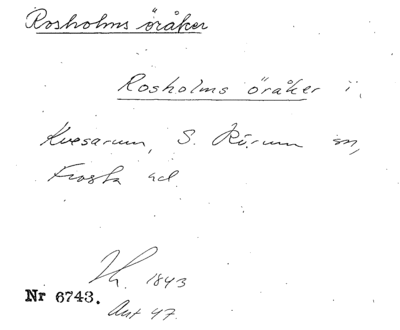 Rosholms öråker
Rosholms öråker i
Kvesarum, S. Rörum sn,
Frosta hd.
1843
Nr 6743.
Ant 47.